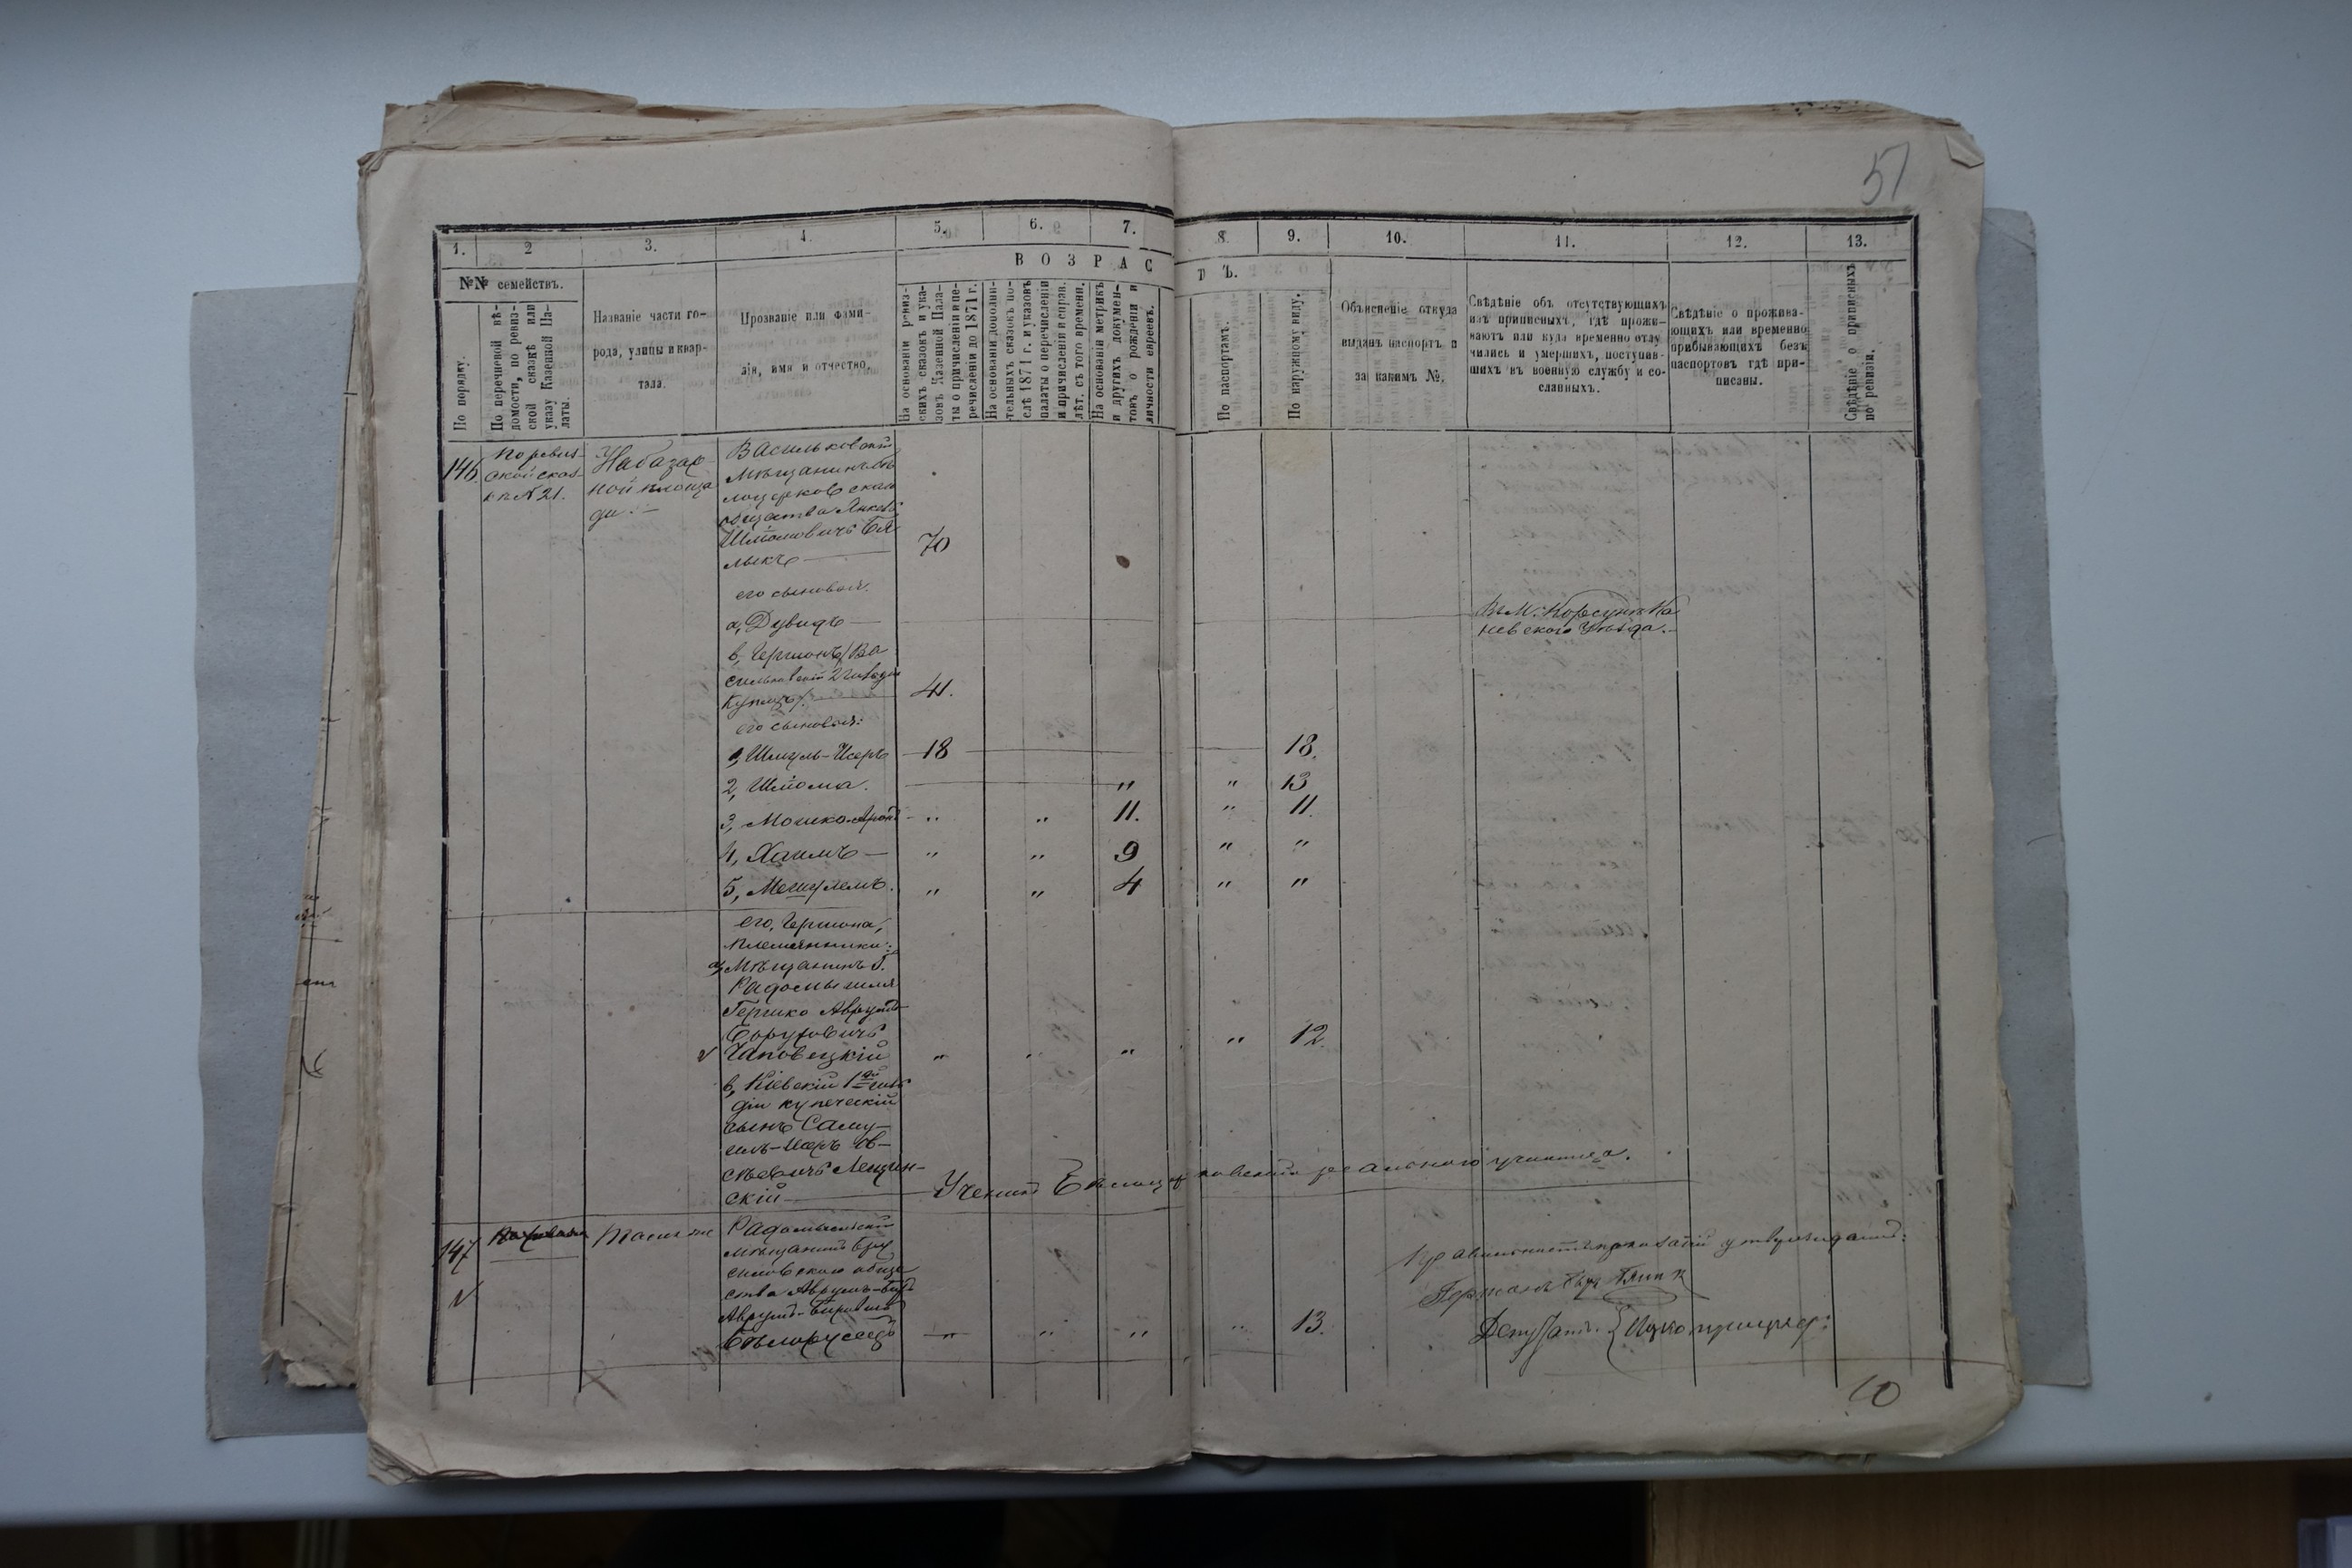 51
1. 2 3. 4. 5. 6. 7. 8. 9. 10. 11. 12. 13.
В О З Р А С Т Ъ.
№№ семействъ.
По порядку.
По перечневой вѣ-
домости, по ревиз-
ской сказкѣ или
указу Казенной Па-
латы.
Названіе части го-
рода, улицы и квар-
тала.
Прозваніе или фами-
лія, имя и отчество.
На основаніи ревиз-
скихъ сказокъ и ука-
зовъ Казенной Пала-
ты о причисленіи и пе-
речисленіи до 1871 г.
На основаніи дополни-
тельныхъ сказокъ по-
слѣ 1871 г. и указовъ
палаты о перечисленіи
и причисленіи и справ.
лѣт. съ того времени.
На основаніи метрикъ
и другихъ докумен-
товъ о рожденіи и
личности евреевъ.
По паспортамъ.
По наружному виду.
Объясненіе откуда
выданъ паспортъ и
за какимъ №.
Свѣдѣніе объ отсутствующихъ
изъ приписныхъ, гдѣ прожи-
ваютъ или куда временно отлу
чились и умершихъ, поступив-
шихъ въ военную службу и со-
сланныхъ.
Свѣдѣніе о прожива-
ющихъ или временно
прибывающихъ безъ
паспортовъ гдѣ при-
писаны.
Свѣдѣніе о приписныхъ
по ревизіи.
146. По ревиз- На базар- Васильковскій
ской сказ- ной площа мѣщанинъ Бѣ
кѣ №21. ди.— лоцерковскаго
общества Янкель
Шлiомовичъ Бя
лыкъ — 70
его сыновья.
а, Дувидъ — Въ м. Корсунѣ Ка
невского Уѣзда.—
в, Гершонъ /Ва
сильковскій 2 гильдіи
Купецъ/. 41.
его сыновья:
1, Шмуль-Исеръ — 18 — 18.
2, Шлiома. — " " 13
3, Мошко-Аронъ - " " 11. " 11.
4, Хаимъ — " " 9 " "
5, Мешулемъ. " " 4 " "
его, Гершона,
племянники:
а, Мѣщанинъ г.
Радомысля
Гершко Аврумъ
Боруховичъ
Чаповецкій " " " " 12.
в, Кіевскій 1ой гиль
діи купеческій
сынъ Саму-
илъ-Исеръ Ов-
сѣевичъ Лещин-
скій — Ученикъ Бѣлоцерковскаго реальнаго училища.
147 Тамъ же Радомысльскій
мѣщанинъ Бру
силовскаго обще
ства Аврумъ-Беръ
Аврумъ-Беровичъ
Бѣлорусецъ — " " " " 13.
Правильность показаній утверждаемъ:
Депутатъ.
10